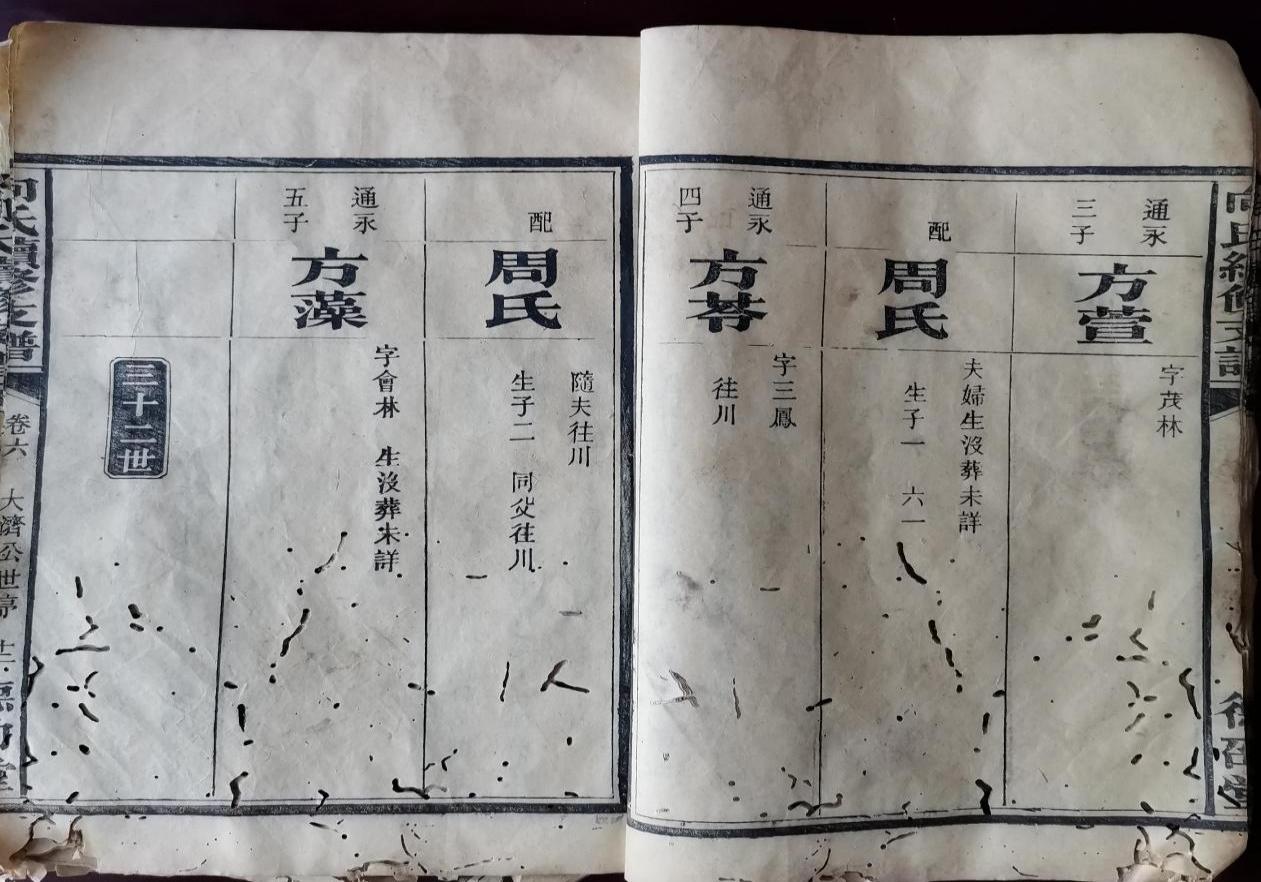 通永
三子
方萱
字茂林
配
周氏
夫婦生沒葬未詳
生子一 六一
通永
四子
方苓
字三鳳
往川
配
周氏
隨夫往川
生子二 同父往川
通永
五子
方藻
字會林 生沒葬未詳
三十二世
向氏續修支譜
卷六
大濟公世